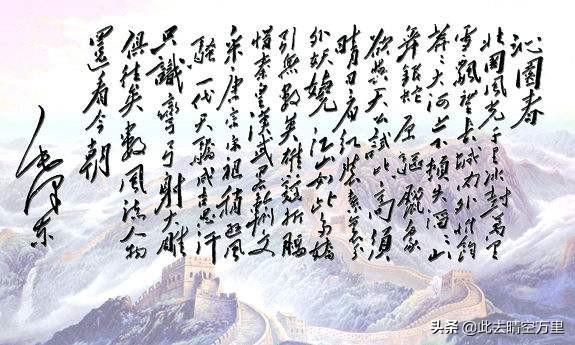 沁園春
北國風光千里冰封萬里
雪飄望長城內外惟餘
莽々大河上下頓失滔々山
舞銀蛇原驅臘象
欲與天公試比高須
晴日看紅裝素裹分
外妖嬈江山如此多嬌
引無數英雄競折腰
惜秦皇漢武略輸文
采唐宗宋祖稍遜風
騷一代天驕成吉思汗
只識彎弓射大雕
俱往矣數風流人物
還看今朝
毛澤東
头条 @此去晴空万里